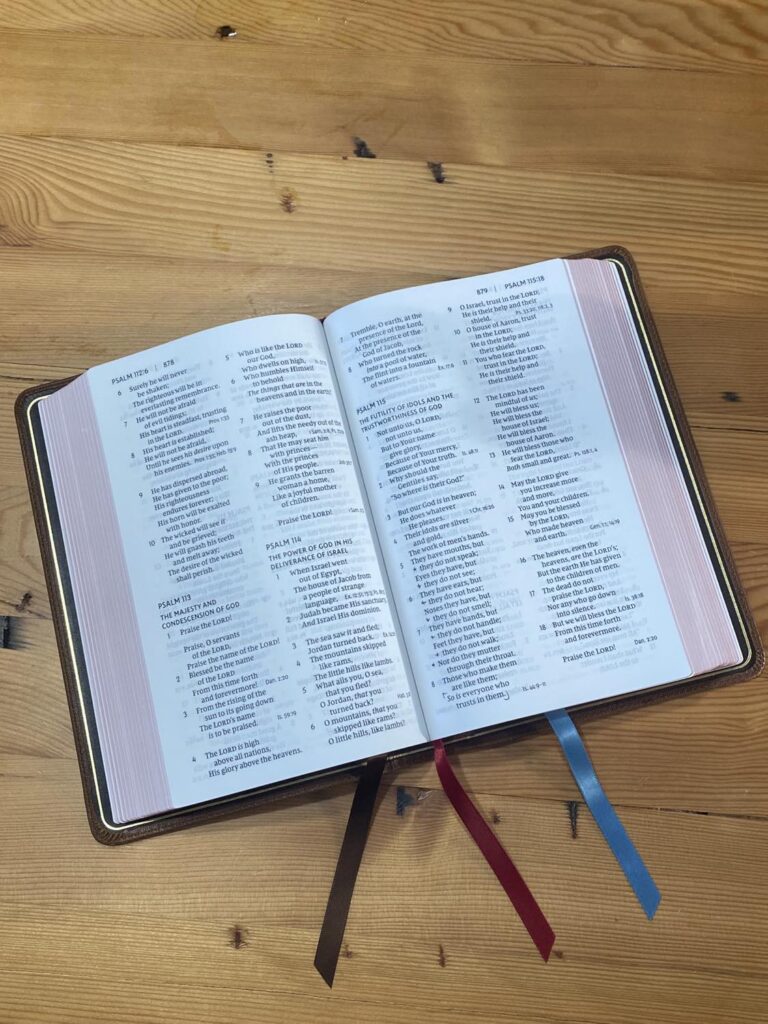 PSALM 112:6 | 878
6 Surely he will never
be shaken;
The righteous will be in
everlasting remembrance.
7 He will not be afraid
of evil tidings;
His heart is steadfast, trusting
in the LORD. Prov. 1:33
8 His heart is established;
He will not be afraid,
Until he sees his desire upon
his enemies.
9 He has dispersed abroad,
He has given to the poor;
His righteousness
endures forever;
His horn will be exalted
with honor.
10 The wicked will see it
and be grieved;
He will gnash his teeth
and melt away;
The desire of the wicked
shall perish.
PSALM 113
THE MAJESTY AND
CONDESCENSION OF GOD
1 Praise the LORD!
Praise, O servants
of the LORD,
Praise the name of the LORD!
2 Blessed be the name
of the LORD
From this time forth
and forevermore! Dan. 2:20
3 From the rising of the
sun to its going down
The LORD's name
is to be praised. Is. 59:19
4 The LORD is high
above all nations,
His glory above the heavens.
5 Who is like the LORD
our God,
Who dwells on high,
6 Who humbles Himself
to behold
The things that are in the
heavens and in the earth?
7 He raises the poor
out of the dust,
And lifts the needy out of the
ash heap,
8 That He may seat him
with princes—
With the princes
of His people.
9 He grants the barren
woman a home,
Like a joyful mother
of children.
Praise the LORD!
PSALM 114
THE POWER OF GOD IN HIS
DELIVERANCE OF ISRAEL
1 When Israel went
out of Egypt,
The house of Jacob from
a people of strange
language,
2 Judah became His sanctuary,
And Israel His dominion.
3 The sea saw it and fled;
Jordan turned back.
4 The mountains skipped
like rams,
The little hills like lambs.
5 What ails you, O sea,
that you fled?
O Jordan, that you
turned back?
6 O mountains, that you
skipped like rams?
O little hills, like lambs?
7 Tremble, O earth, at the
presence of the Lord,
At the presence of the
God of Jacob,
8 Who turned the rock
into a pool of water,
The flint into a fountain
of waters.
PSALM 115
THE FUTILITY OF IDOLS AND THE
TRUSTWORTHINESS OF GOD
1 Not unto us, O LORD,
not unto us,
But to Your name
give glory,
Because of Your mercy,
Because of Your truth.
2 Why should the
Gentiles say,
"So where is their God?"
3 But our God is in heaven;
He does whatever
He pleases.
4 Their idols are silver
and gold,
The work of men's hands.
5 They have mouths, but
they do not speak;
Eyes they have, but
they do not see;
6 They have ears, but
they do not hear;
Noses they have, but
they do not smell;
7 They have hands, but
they do not handle;
Feet they have, but
they do not walk;
Nor do they mutter
through their throat.
8 Those who make them
are like them;
So is everyone who
trusts in them. Is. 44:9-11
879 | PSALM 115:18
9 O Israel, trust in the LORD;
He is their help and their
shield.
10 O house of Aaron, trust
in the LORD;
He is their help and
their shield.
11 You who fear the LORD,
trust in the LORD;
He is their help and
their shield.
12 The LORD has been
mindful of us;
He will bless us;
He will bless the
house of Israel;
He will bless the
house of Aaron.
13 He will bless those who
fear the LORD,
Both small and great.
14 May the LORD give
you increase more
and more,
You and your children.
15 May you be blessed
by the LORD,
Who made heaven
and earth. Gen. 14:19
16 The heaven, even the
heavens, are the LORD's;
But the earth He has given
to the children of men.
17 The dead do not
praise the LORD,
Nor any who go down
into silence.
18 But we will bless the LORD
From this time forth
and forevermore.
Praise the LORD! Dan. 2:20